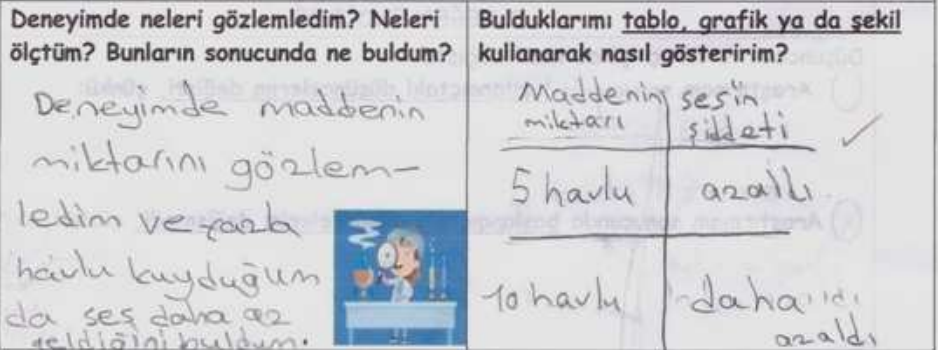 Deneyimde neleri gözlemledim? Neleri
ölçtüm? Bunların sonucunda ne buldum?
Deneyimde maddenin
miktarını gözlem-
ledim ve fazla
havlu kuyduğum
da ses daha az
geldiğini buldum.
Bulduklarımı tablo, grafik ya da şekil
kullanarak nasıl gösteririm?
Maddenin miktarı | ses'in şiddeti
5 havlu | azaldı
10 havlu | daha azaldı